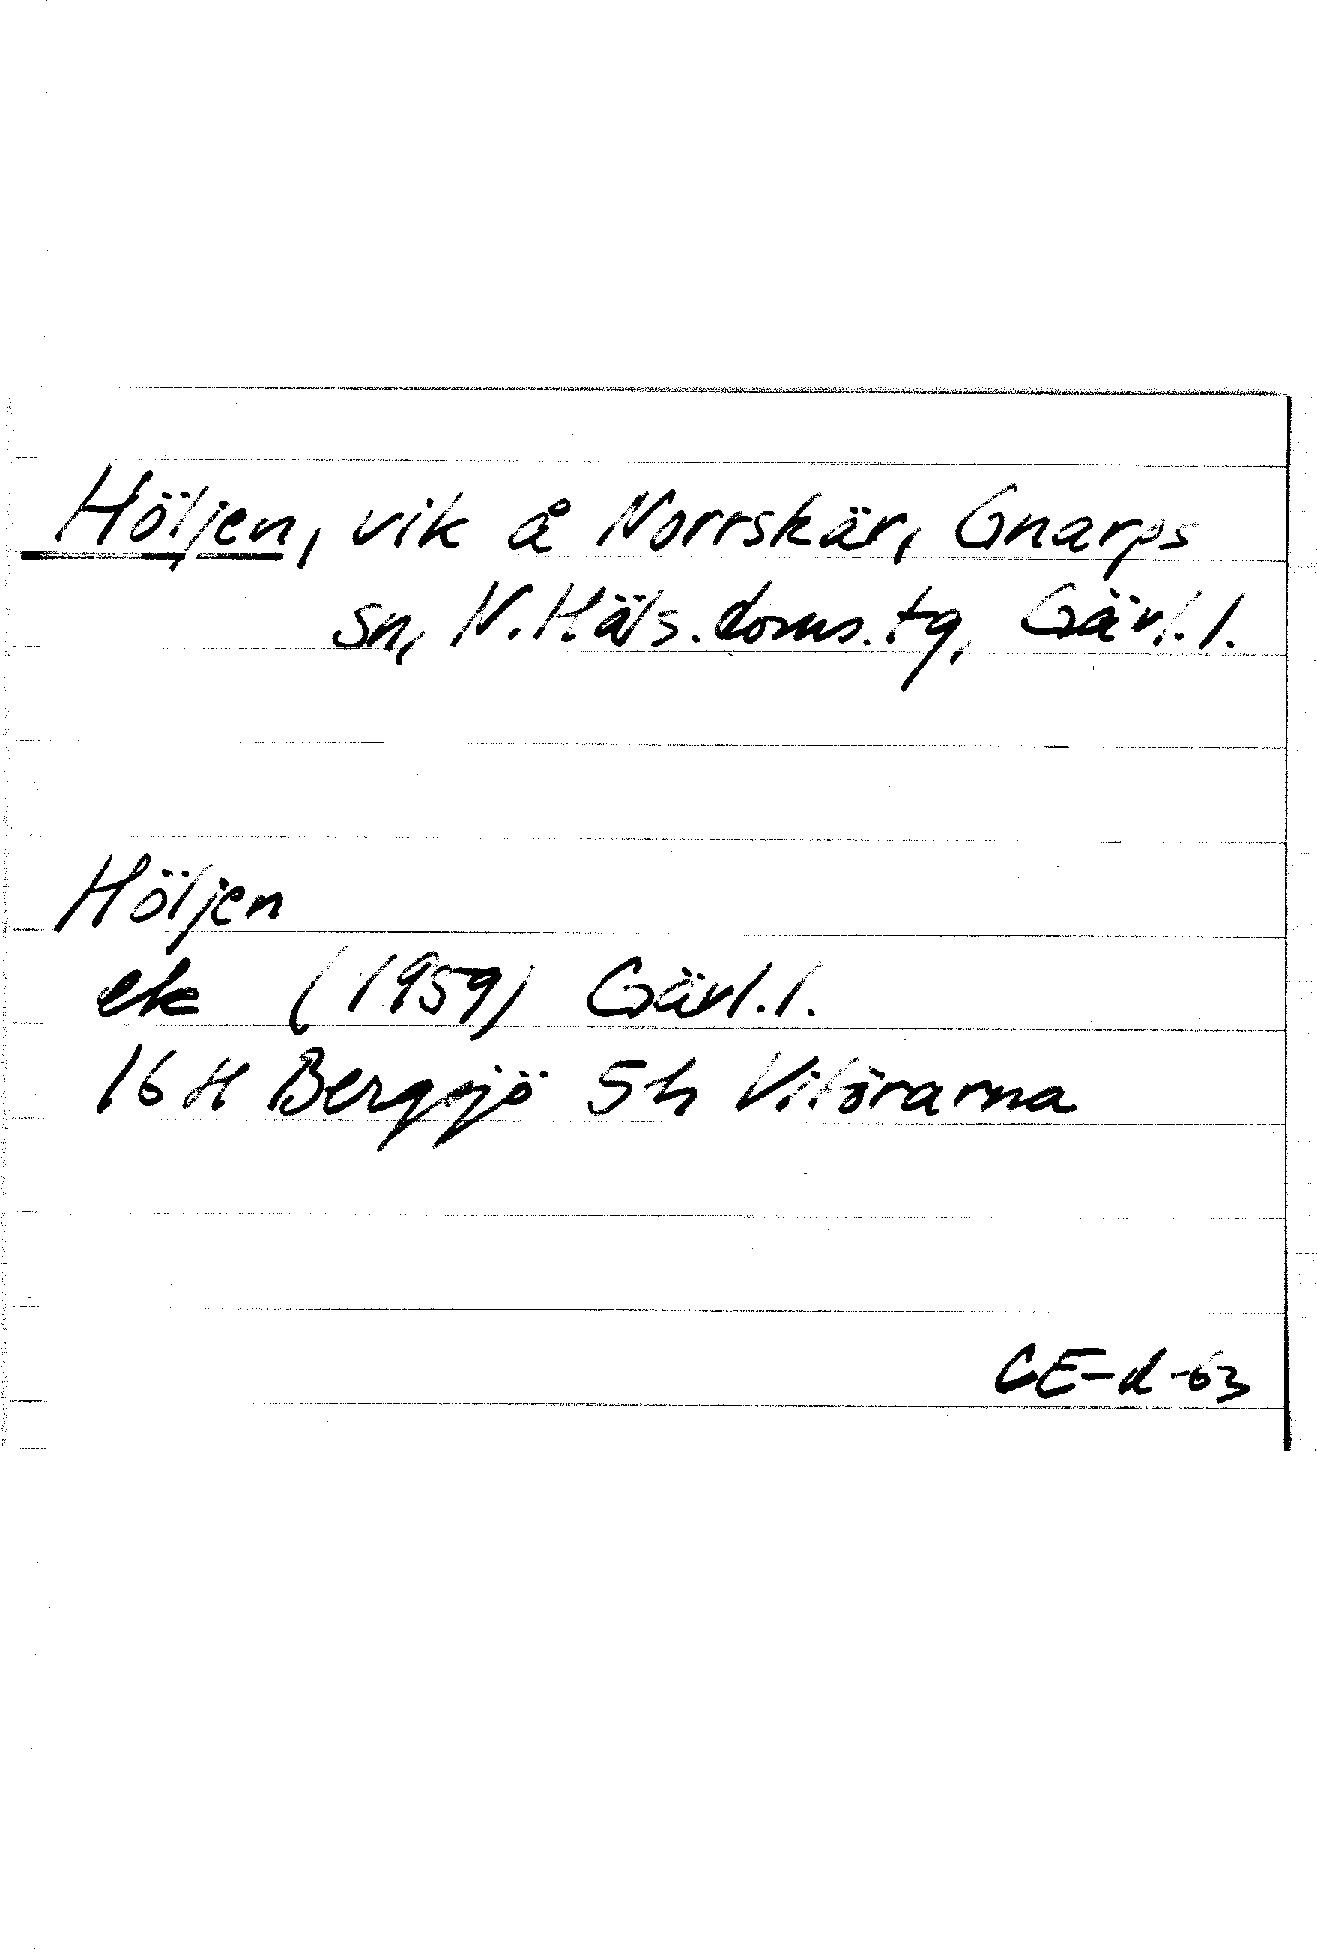 Höljen, vik å Norrskär, Gnarps
sn, N. Häls. doms. tg, Gävl. l.
Höljen
ek (1959) Gävl. l.
16 H Bergsjö 5h Vitörarna
CE-d-63